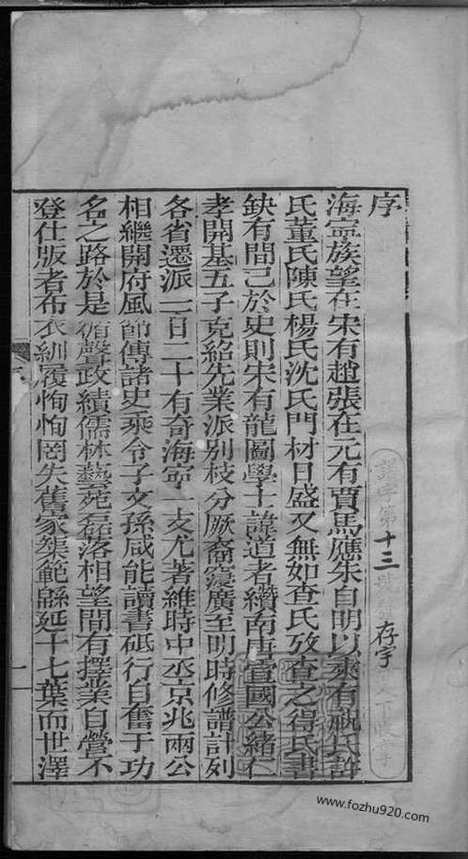 序
海寧族望在宋有趙張在元有賈馬應朱自明以來有祝氏許
氏董氏陳氏楊氏沈氏門材日盛又無如查氏攷查之得氏書
缺有間已於史則宋有龍圖學士諱道者纘南唐宣國公緒仁
孝開基五子克紹先業派別枝分厥裔寖廣至明時修譜計列
各省遷派一百二十有奇海寧一支尤著維時中丞京兆兩公
相繼開府風節傳諸史乘令子文孫咸能讀書砥行自奮于功
名之路於是循聲政績儒林藝苑磊落相望間有擇業自營不
登仕版者布衣紃履恂恂罔失舊家榘範緜延十七葉而世澤
譜字第十三號
存字
www.fozhu920.com